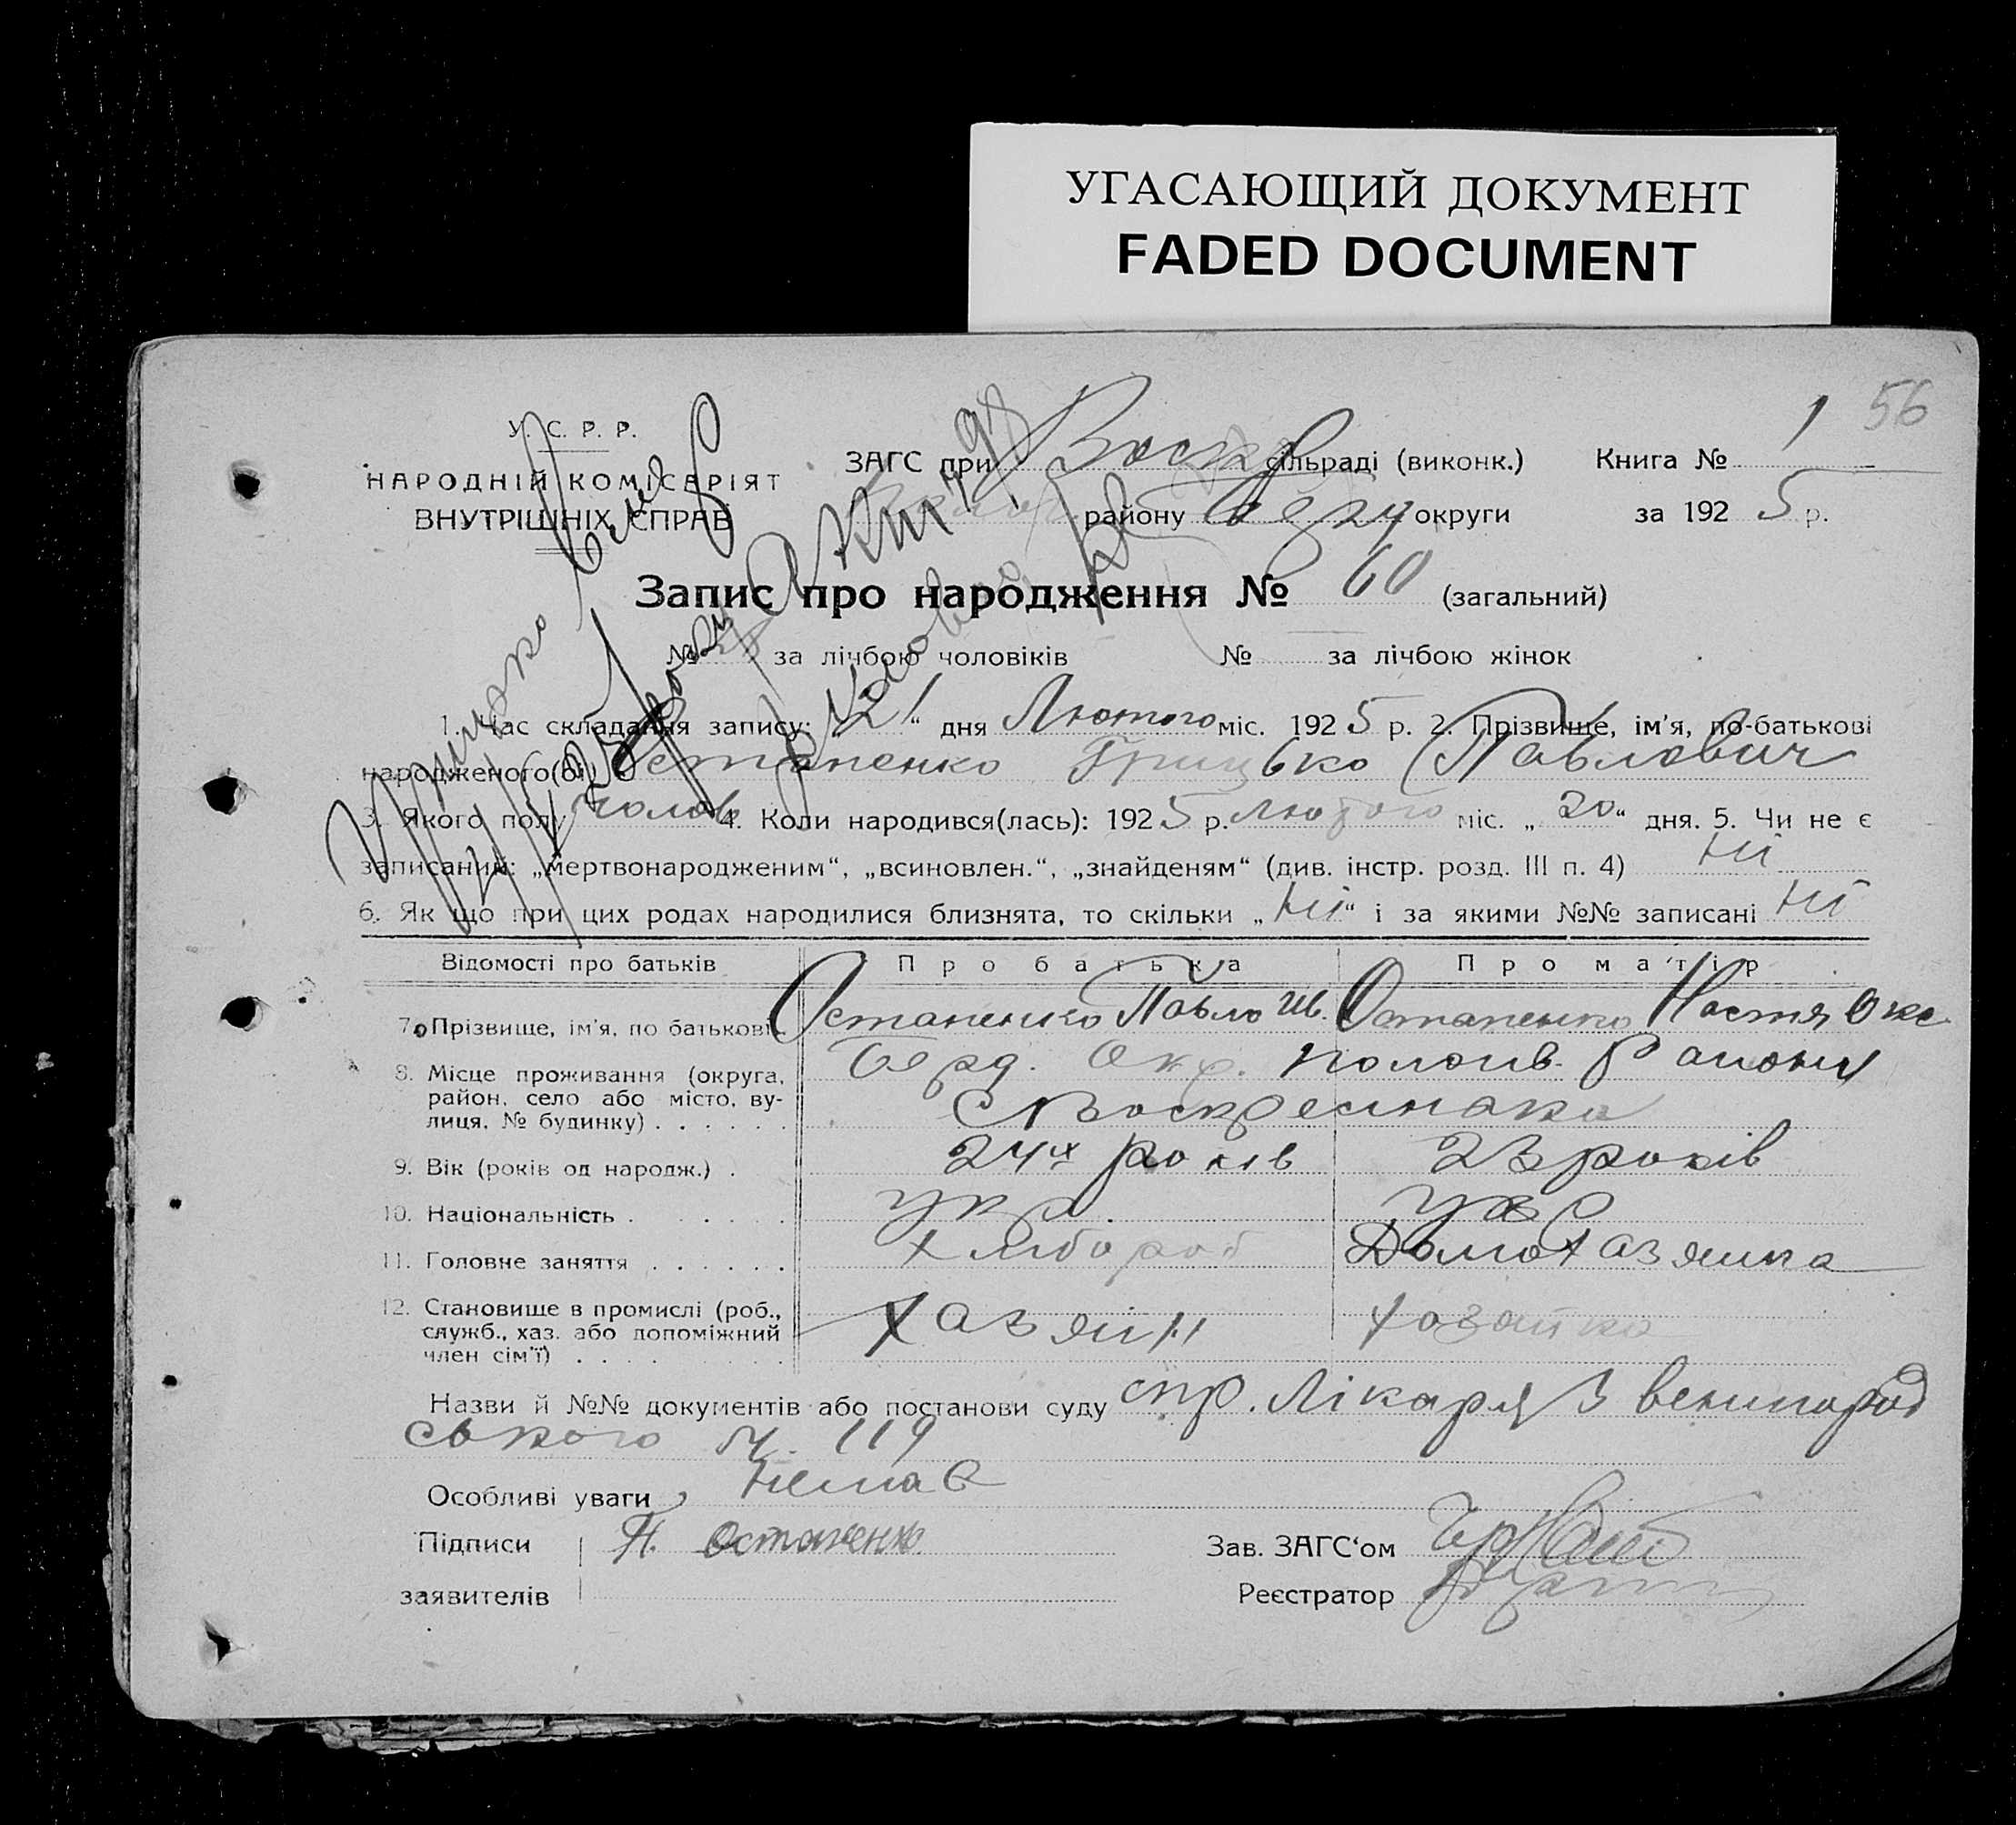 УГАСАЮЩИЙ ДОКУМЕНТ
FADED DOCUMENT
56
У. С. Р. Р.
НАРОДНІЙ КОМІСАРІЯТ
ВНУТРІШНІХ СПРАВ
ЗАГС при Воскр сільраді (виконк.) Книга № 1
району округи за 1925 р.
Запис про народження № 60 (загальний)
№ за лічбою чоловіків № за лічбою жінок
1. Час складання запису: 21“ дня Лютого міс. 1925 р. 2. Прізвище, ім'я, по-батькові
народженого(ої) Остапенко Грицько Павлович
3. Якого полу чолов 4. Коли народився(лась): 1925 р. лютого міс. „20“ дня. 5. Чи не є
записаний: „мертвонародженим“, „всиновлен.“, „знайденям“ (див. інстр. розд. III п. 4) ні
6. Як що при цих родах народилися близнята, то скільки „ні“ і за якими №№ записані ні
Відомості про батьків Про батька Про матір
7. Прізвище, ім'я, по батькові Остапенко Павло Ів. Остапенко Настя Окс
8. Місце проживання (округа, район, село або місто, ву- лиця, № будинку) Берд. Окр. Пологів. Району
с Воскресенака
9. Вік (років од народж.) 24х років 23 років
10. Національність укр. укр
11. Головне заняття хлібороб Домохазяика
12. Становище в промислі (роб., служб., хаз. або допоміжний член сім'ї) хазяин хозайка
Назви й №№ документів або постанови суду спр. Лікаря Звенигород
ського 119
Особливі уваги немає
Підписи П. Остапенко Зав. ЗАГС‘ом
заявителів Реєстратор